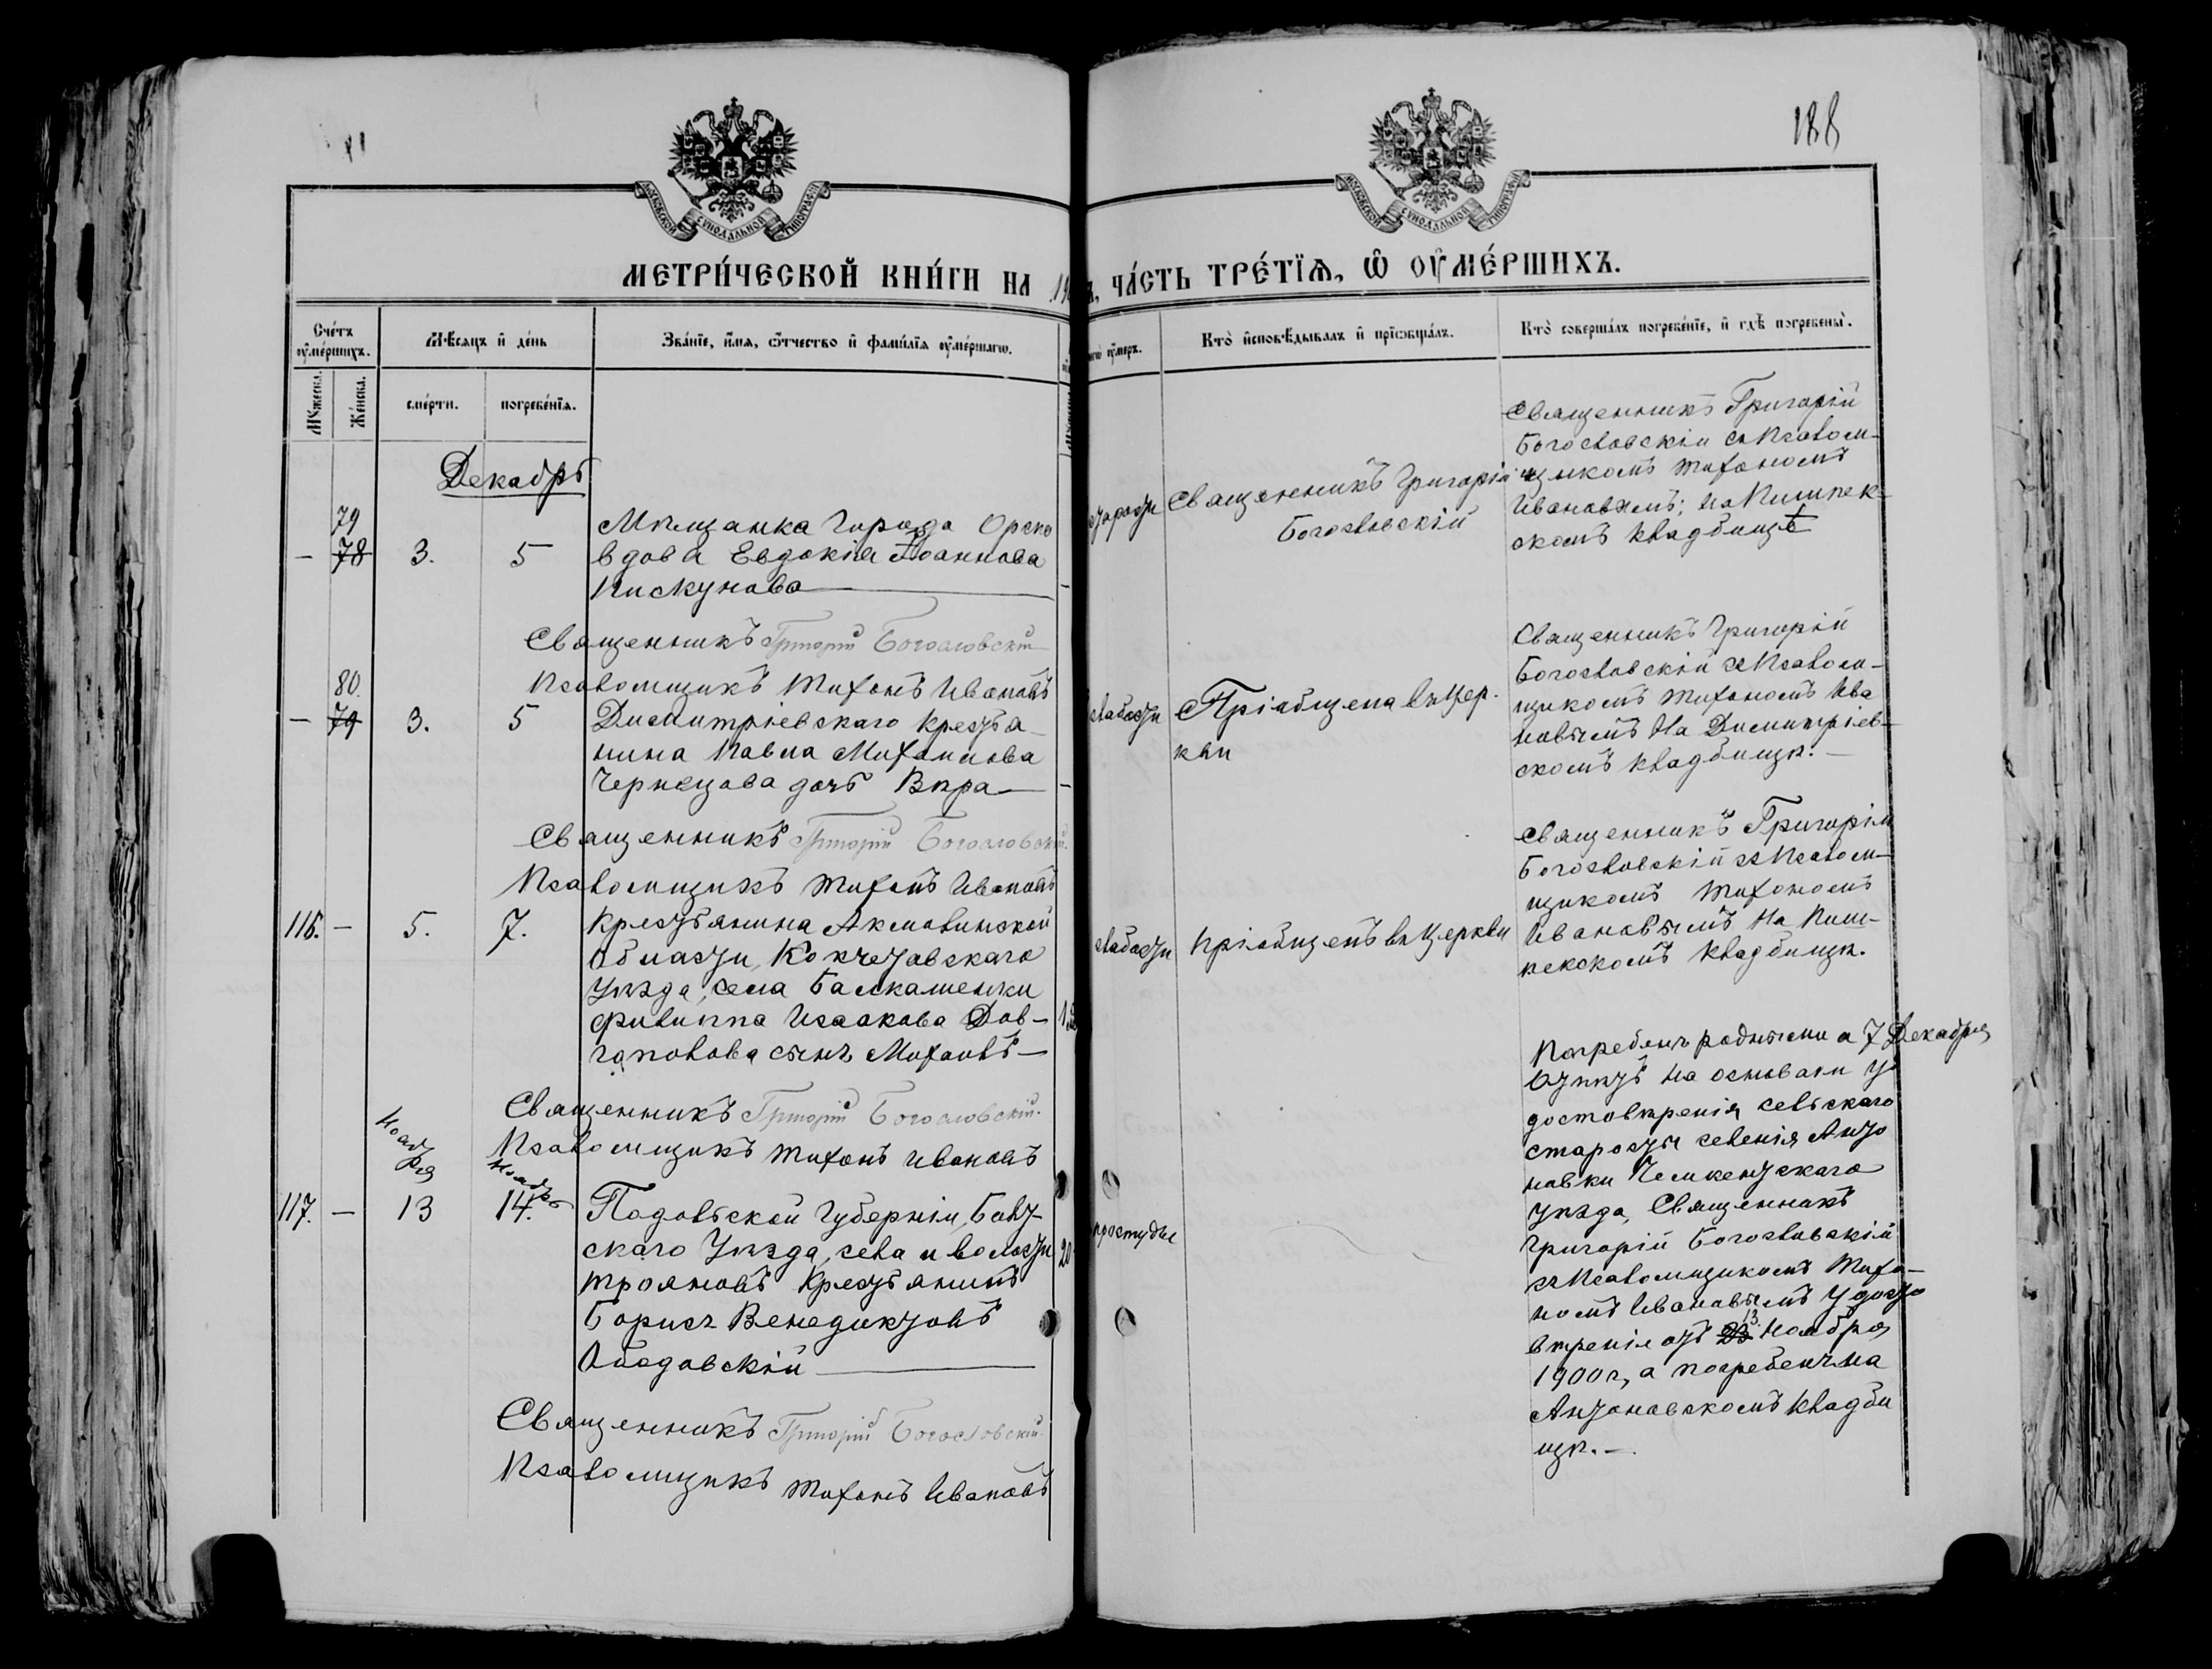 188
МОСКОВСКОЙ СѴНОДАЛЬНОЙ ТИПОГРАФІИ
МОСКОВСКОЙ СѴНОДАЛЬНОЙ ТИПОГРАФІИ
МЕТРИ́ЧЕСКОЙ КНИ́ГИ НА 19
ЧА́СТЬ ТРЕ́ТЇѦ, Ѡ ОУ҆МЕ́РШИХЪ.
Сче́тъ оу҆ме́ршихъ.
Мꙋжеска.
Же́нска.
Мѣ́сяцъ и҆ де́нь
сме́рти.
погребе́нїѧ.
Зва́нїе, и҆́мѧ, ѻ҆́тчество и҆ фами́лїѧ оу҆ме́ршагѡ.
оу҆́меръ.
Кто̀ и҆сповѣ́дывалъ и҆ прїѻбща́лъ.
Кто̀ соверша́лъ погребе́нїе, и҆ гдѣ̀ погребены̀.
Декабрь
79
— 78 3. 5
Мѣщанка города Орска
вдова Евдокія Іоаннова
Пискунова —
старости
Священникъ Григорій
Богословскій
Священникъ Григорій
Богословскій съ Псаломщ-
щикомъ Тихономъ
Ивановымъ; на Пишпек-
скомъ кладбищѣ
Священникъ Григорій Богословскій
Псаломщикъ Тихонъ Ивановъ
80.
— 79 3. 5
Дмитріевскаго крестья-
нина Павла Михаилова
Чернецова дочь Вѣра —
слабости
Пріобщена въ цер-
кви
Священникъ Григорій
Богословскій съ Псалом-
щикомъ Тихономъ Ива
новымъ на Димитріев-
скомъ кладбищѣ. —
Священникъ Григорій Богословскій.
Псаломщикъ Тихонъ Ивановъ
116. — 5. 7.
Крестьянина Акмолинской
области, Кокчетавскаго
уѣзда, села Балкашенки
Филиппа Исаакова Дов-
гополова сынъ Михаилъ —
слабости
Пріобщенъ въ церкви
Священникъ Григорій
Богословскій съ Псалом-
щикомъ Тихономъ
Ивановымъ на Пиш-
пекскомъ кладбищѣ.
Священникъ Григорій Богословскій.
Псаломщикъ Тихонъ Ивановъ
Ноября
Ноябрь
117. — 13 14.
Подольской губерніи, Балт-
скаго уѣзда, села и волости
Трояновъ крестьянинъ
Борисъ Венедиктовъ
20
простуды
Погребенъ родными а 7 Декабря
отпѣтъ на основаніи у
достовѣренія сельскаго
старосты селенія Анто
новки Чемкентскаго
уѣзда, Священникъ
Григорій Богословскій
съ Псаломщикомъ Тихо-
номъ Ивановымъ удосто
вѣренія отъ 13. Ноября
1900 г, а погребенъ на
Антоновскомъ кладби
щѣ. —
Священникъ Григорій Богословскій.
Псаломщикъ Тихонъ Ивановъ